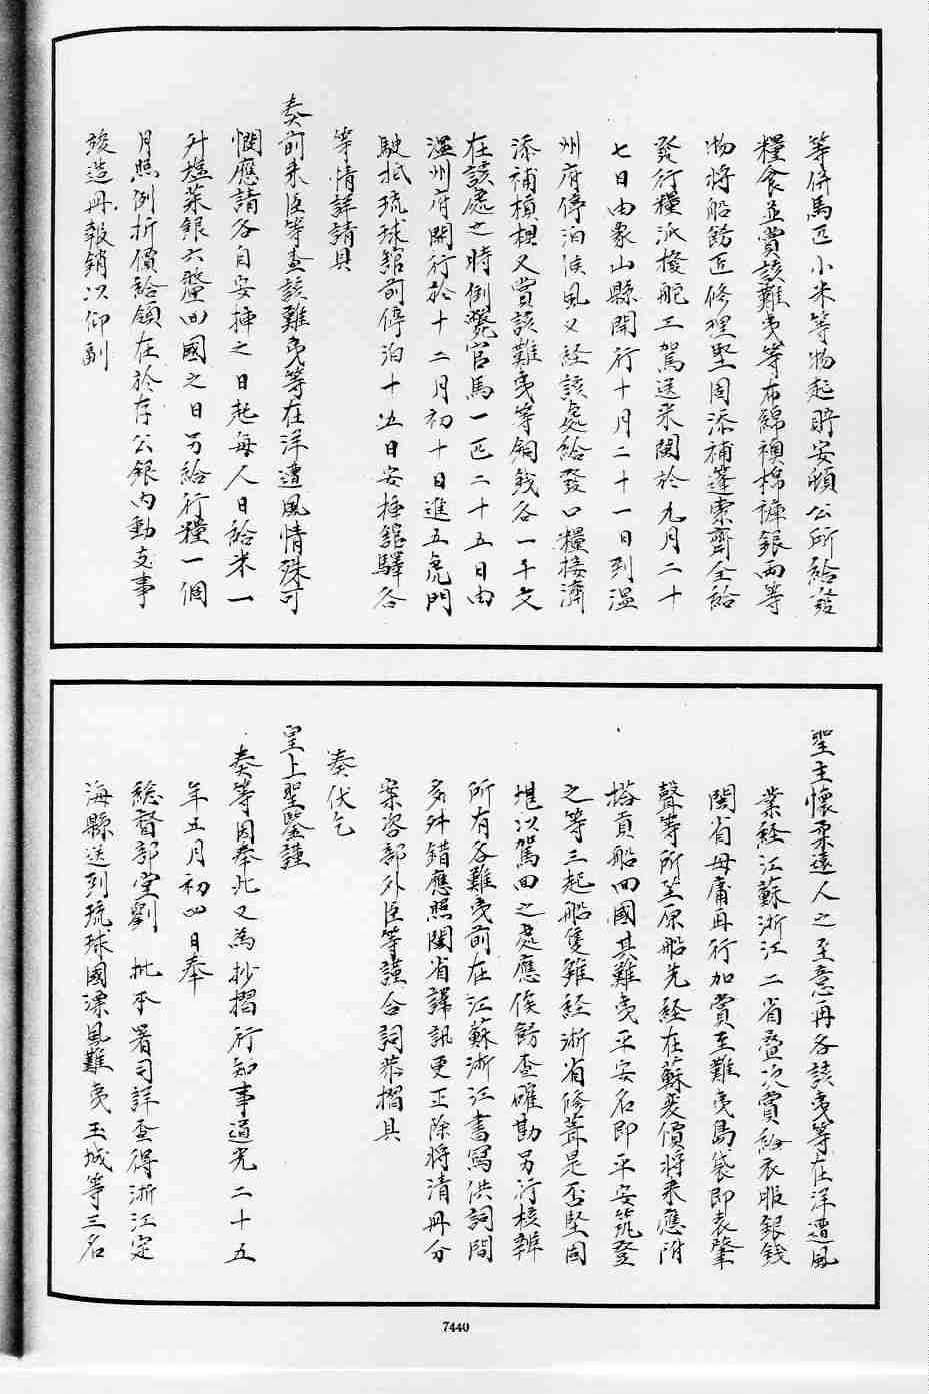 等併馬匹小米等物起貯安頓公所給發
糧食並賞該難夷等布綿襖棉褲銀兩等
物將船飭匠修理堅固添補蓬索齊全給
發行糧派撥舵工駕送來閩於九月二十
七日由象山縣開行十月二十一日到溫
州府停泊候風又經該處給發口糧接濟
添補槓椇又賞該難夷等銅錢各一千文
在該處之時倒斃官馬一匹二十五日由
溫州府開行於十二月初十日進五虎門
駛抵琉球館前停泊十五日安揷館驛各
等情詳請具
奏前來臣等查該難夷等在洋遭風情殊可
憫應請各自安揷之日起每人日給米一
升塩菜銀六釐回國之日另給行糧一個
月照例折價給領在於存公銀內動支事
竣造冊報銷以仰副
聖主懷柔遠人之至意再各該夷等在洋遭風
業經江蘇浙江二省叠次賞給衣服銀錢
閩省毋庸再行加賞至難夷島袋即表肇
聲等所坐原船先經在蘇変價將來應附
搭貢船回國其難夷平安名即平安筑登
之等三起船隻雖經浙省修葺是否堅固
堪以駕回之處應俟飭查確勘另行核辦
所有各難夷前在江蘇浙江書寫供詞間
多舛錯應照閩省譯訊更正除將清冊分
案咨部外臣等謹合詞恭摺具
奏伏乞
皇上聖鑒謹
奏等因奉此又為抄摺行知事道光二十五
年五月初四日奉
總督部堂劉 批本署司詳查得浙江定
海縣送到琉球國漂風難夷玉城等三名
7440